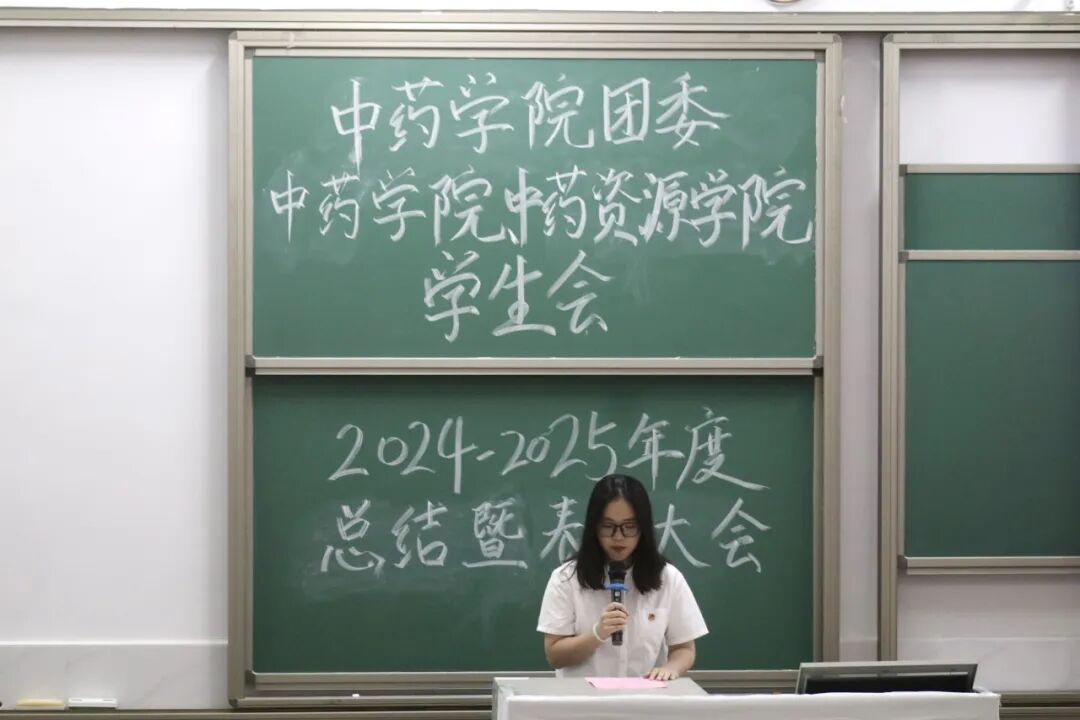 中药学院团委
中药学院、中药资源学院
学生会
2024-2025年度
总结暨表大会